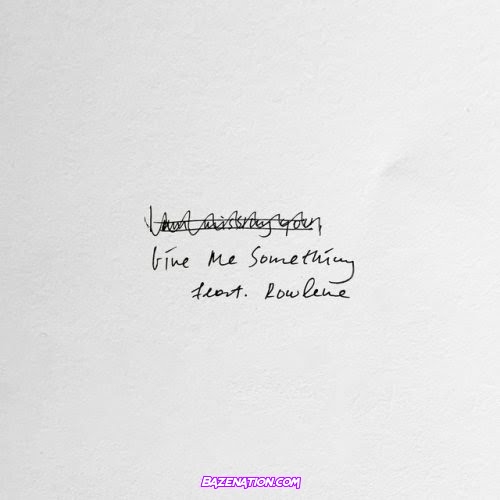 Give Me Something
feat. Rowlene
BAZENATION.COM